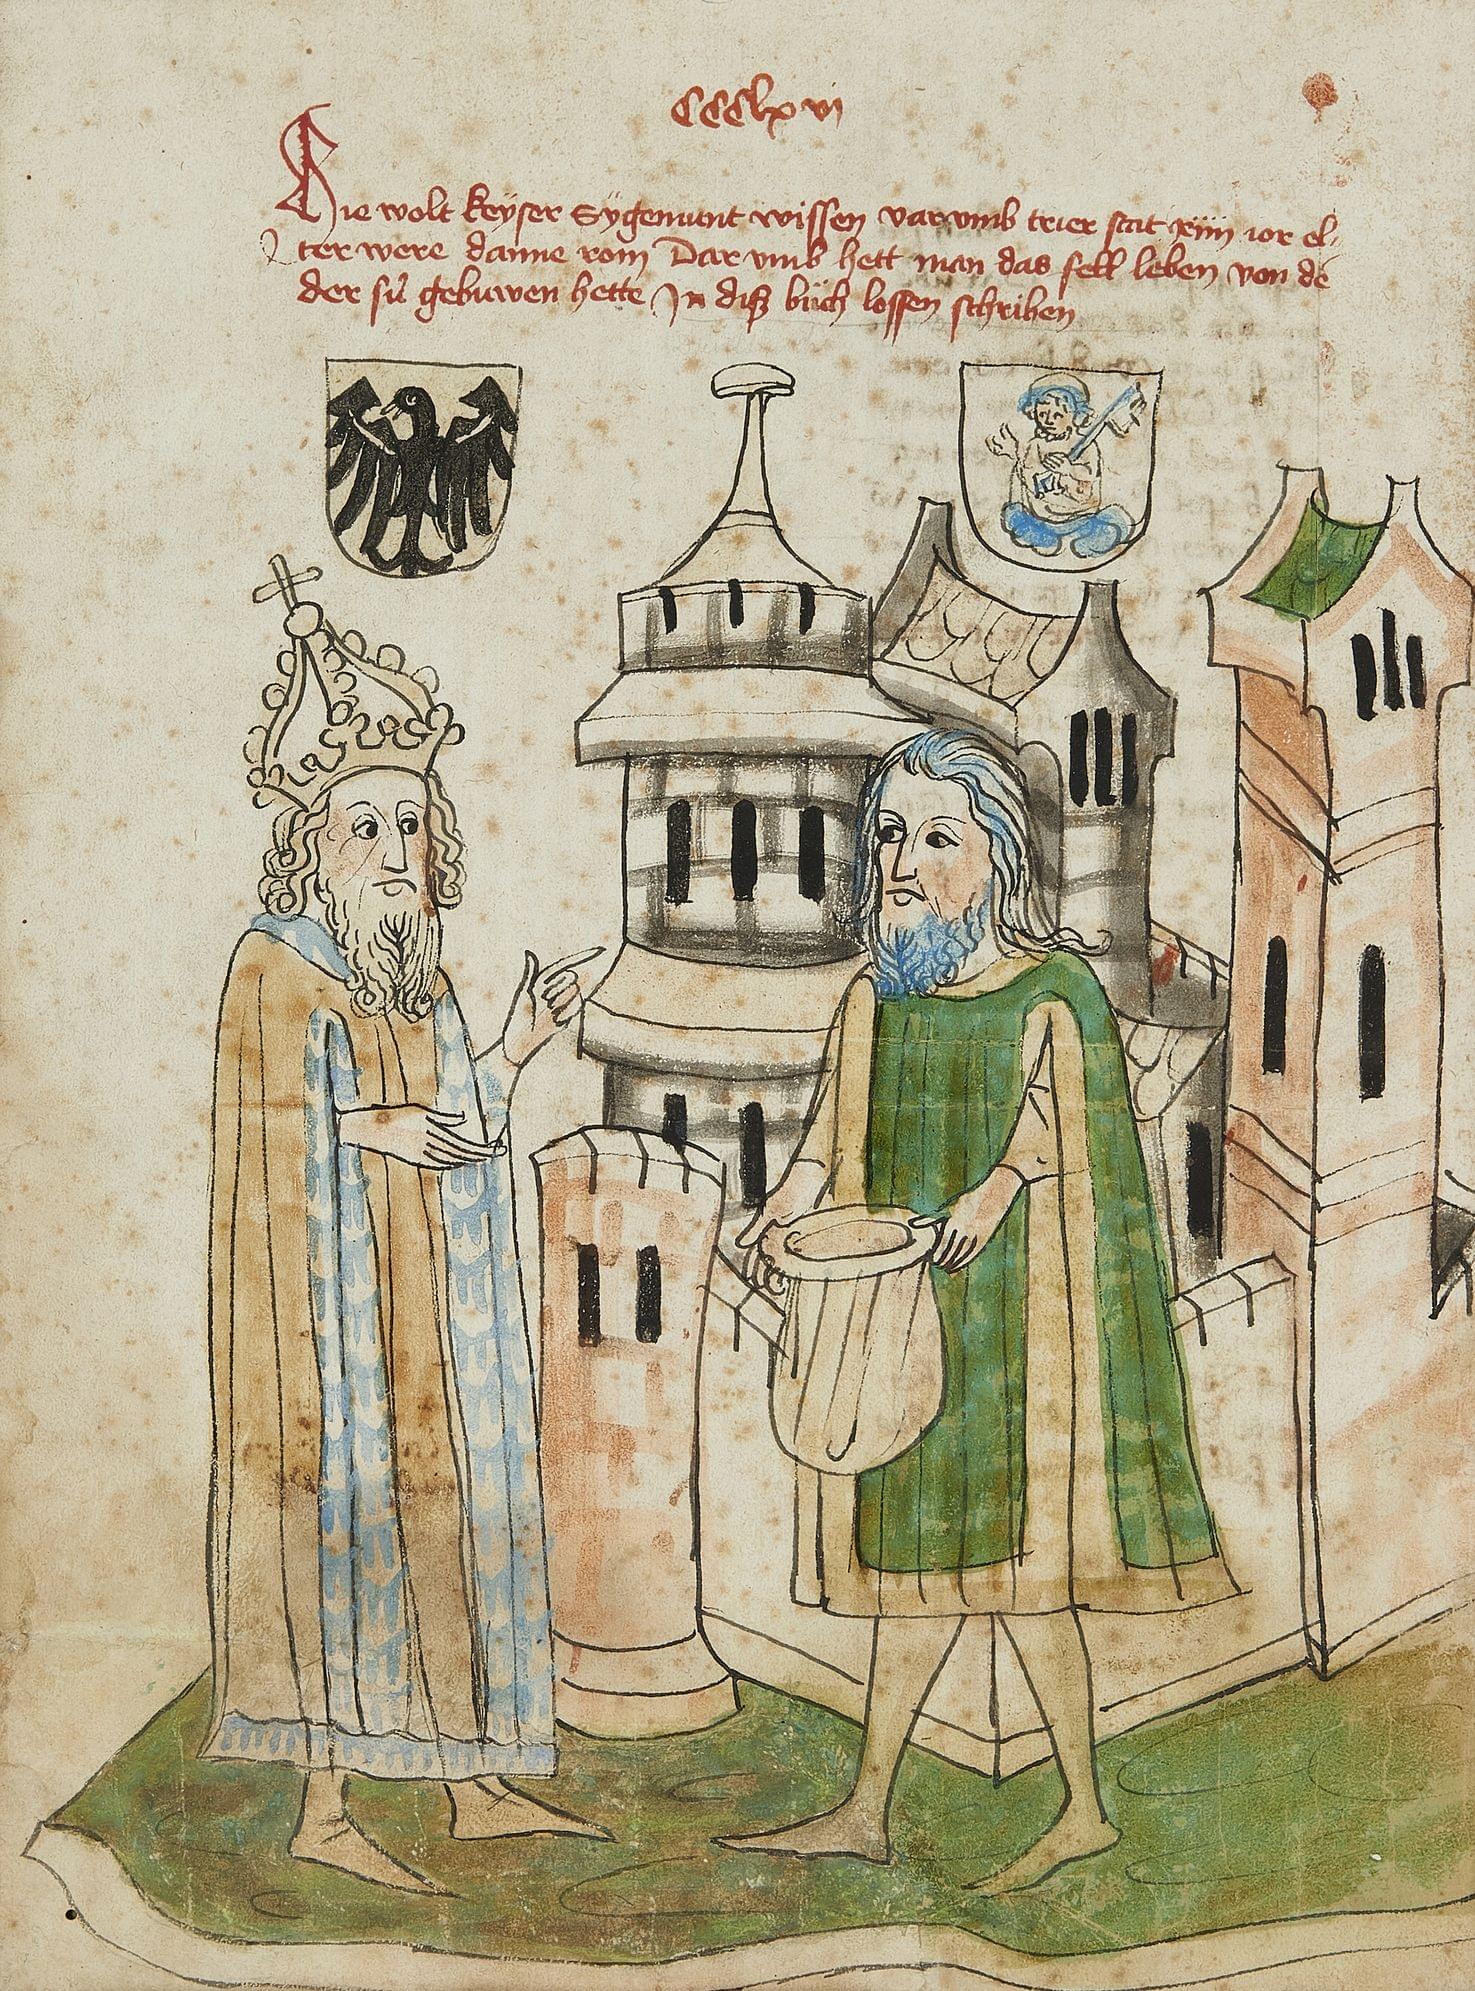 CCClxvj
Hie wolt keyser Sygemunt wissen varvmb trier stat xiijᶜ ior el-
ter were danne rom Dar vmb hett man das sell leben von dē
der sú gebuwen hette Jn disz bůch lossen schriben